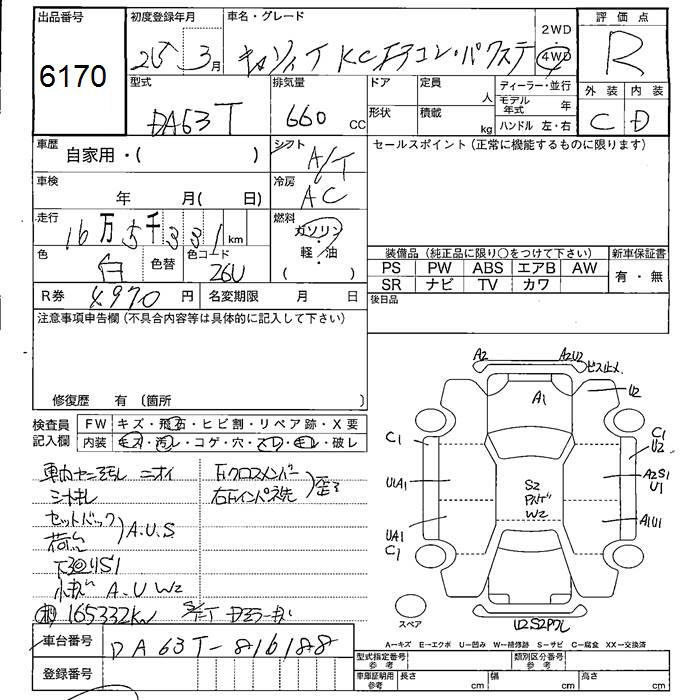 出品番号 初度登録年月 車名・グレード 評価点
6170 25年 3月 キャリイ KC エアコン・パワステ 2WD 4WD R
型式 排気量 ドア 定員 人 ディーラー・並行 モデル年式 年 外装 内装
DA63T 660 cc 形状 積載 kg ハンドル 左・右 C D
車歴 自家用・( ) シフト A/T セールスポイント(正常に機能するものに限ります)
車検 年 月( 日) 冷房 AC
走行 16万5千331km 燃料 ガソリン 軽・油 ( )
色 白 色替 色コード 26U
装備品(純正品に限り○をつけて下さい) 新車保証書
PS PW ABS エアB AW 有・無
SR ナビ TV カワ
R券 4970円 名変期限 月 日 後日品
注意事項申告欄(不具合内容等は具体的に記入して下さい)
修復歴 有(箇所
検査員記入欄 FW キズ・飛石・ヒビ割・リペア跡・X要
内装 キズ・汚レ・コゲ・穴・スレ・キレ・破レ
ニオイ
右クロスメンバー
セットバック
A.U.S
荷台
A.U W2
165332km
A2 A2U2 ビス止メ
A1 U2
C1 C1 U2
U1A1 S2 A2S1 U1
W2 A1U1
UA1 C1
スペア U2S2
車台番号 DA63T-816188
A=キズ E=エクボ U=凹み W=補修跡 S=サビ C=腐食 XX=交換済
登録番号
型式指定番号 参考 類別区分番号 参考
車庫証明用 参考 長さ cm 幅 cm 高さ cm